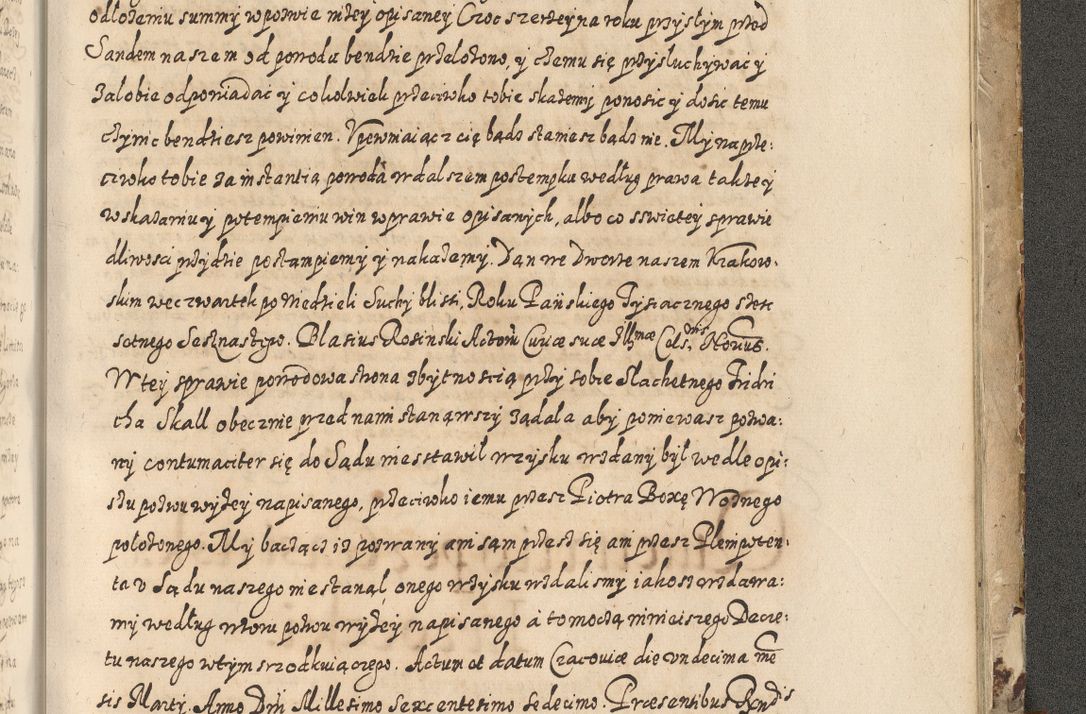 odłożeniu summy w pozwie niżey opisaney Czoć szerzey na roku przyszłym przed
Sandem naszem od powoda bendzie przełożono, y czemu się przysłuchywać y
żalobie odpowiadać y cokolwiek przeciwko tobie skażemy ponosic y dosic temu
czynic bendziesz powinien. Vpewniaiącz cię bądz staniesz bądz nie. My naprze:
ciwko tobie za instantią powoda w dalszem postempku według prawa także y
w skazaniu y potempieniu win w prawie opisanych, albo co s swiętey sprawie
dliwosci przydzie postąmpiemy y nakażemy. Dan we Dworze naszem Krakow:
skim we czwartek po Niedzieli Suchy bliski, Roku Pańskiego Tysiacznego szesc
sotnego Sesznastego. Blasius Rosinski Actorũ Curiæ suæ Illmæ Cels. nis Notarius.
W tey sprawie powodowa strona z bytnoscią przy sobie Slachetnego Fridri
cha Skall obecznie przed nami stanąwszy żądala aby poniewasz pozwa:
ny contumaciter się do Sądu nie stawil w zysku w zdany był wedle opi:
su pozwu wyżey napisanego, przeciwko iemu przesz Piotra Boxę Woznego
polożonego. My bacząc iż pozwany ani sąm przesz się ani przesz Plenipoten:
ta v Sądu naszego nie stanąl onego w zysku w zdalismy iakosz w zdawa:
my według wzoru pozwu wyżey napisanego a to moczą ninieiszego Decre:
tu naszego w tym srzodkuiączego. Actum et datum Cracoviæ die vndecima mẽ
sis Marty. Anno Dñi Millesimo Sexcentesimo sedecimo. Præsentibus Rndis